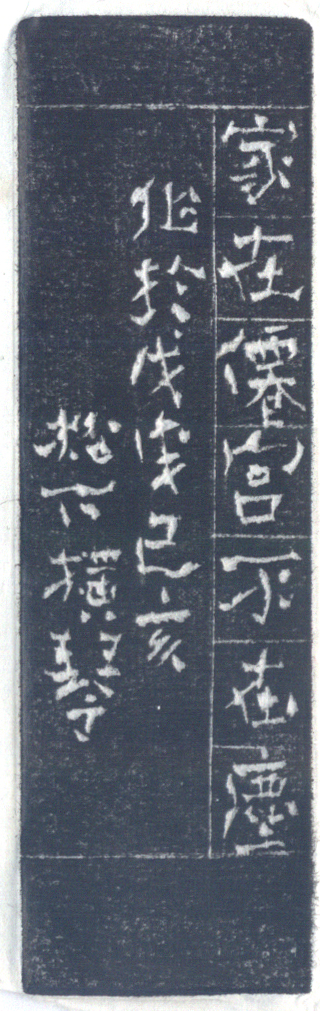 家在僊宮不在塵
作於戊戌己亥
松下橫琴